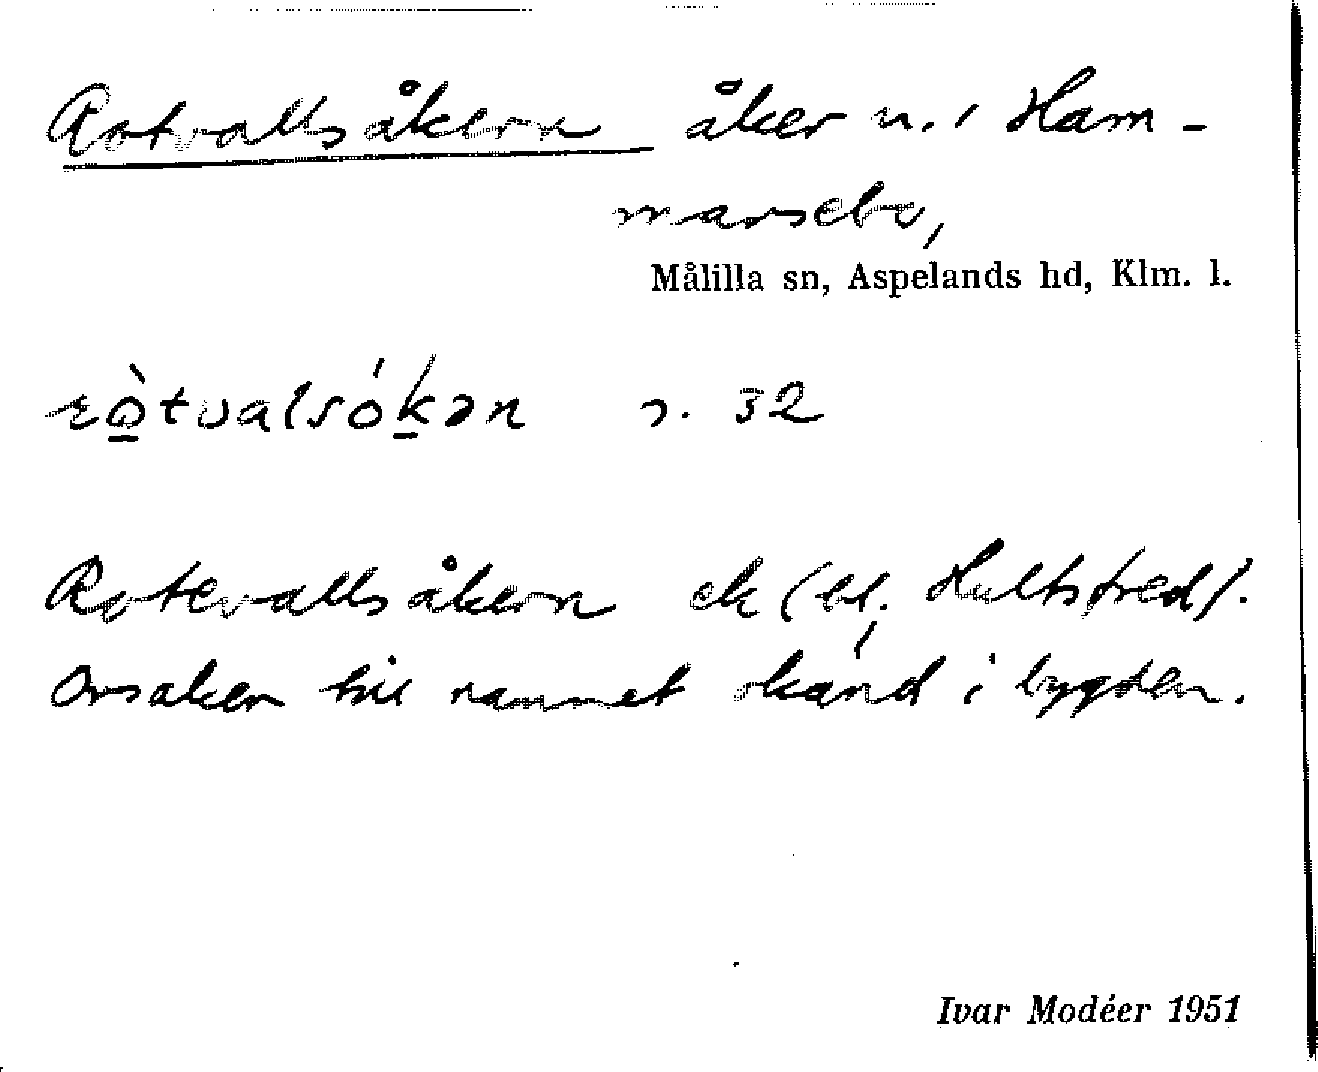 Rotvallsåkern åker n. i Ham-
marsebo,
Målilla sn, Aspelands hd, Klm. l.
rò̲tvalsók̲ən s. 32
Rotevallsåkern ek (bl. Hultsfred).
Orsaken till namnet okänd i bygden.
Ivar Modéer 1951